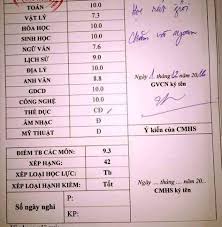 TOÁN 10.0
VẬT LÝ 7.3
HÓA HỌC 10.0
SINH HỌC 10.0
NGỮ VĂN 7.6
LỊCH SỬ 9.0
ĐỊA LÝ 10.0
ANH VĂN 8.8
GDCD 10.0
CÔNG NGHỆ 10.0
THỂ DỤC CĐ
ÂM NHẠC Đ
MỸ THUẬT Đ
ĐIỂM TB CÁC MÔN: 9.3
XẾP HẠNG: 42
XẾP LOẠI HỌC LỰC: Tb
XẾP LOẠI HẠNH KIỂM: Tốt
Số ngày nghỉ
P:
KP:
giỏi
Chăm và ngoan
Ngày
GVCN ký tên
Ý kiến của CMHS
Ngày ... tháng ... năm 20..
CMHS ký tên